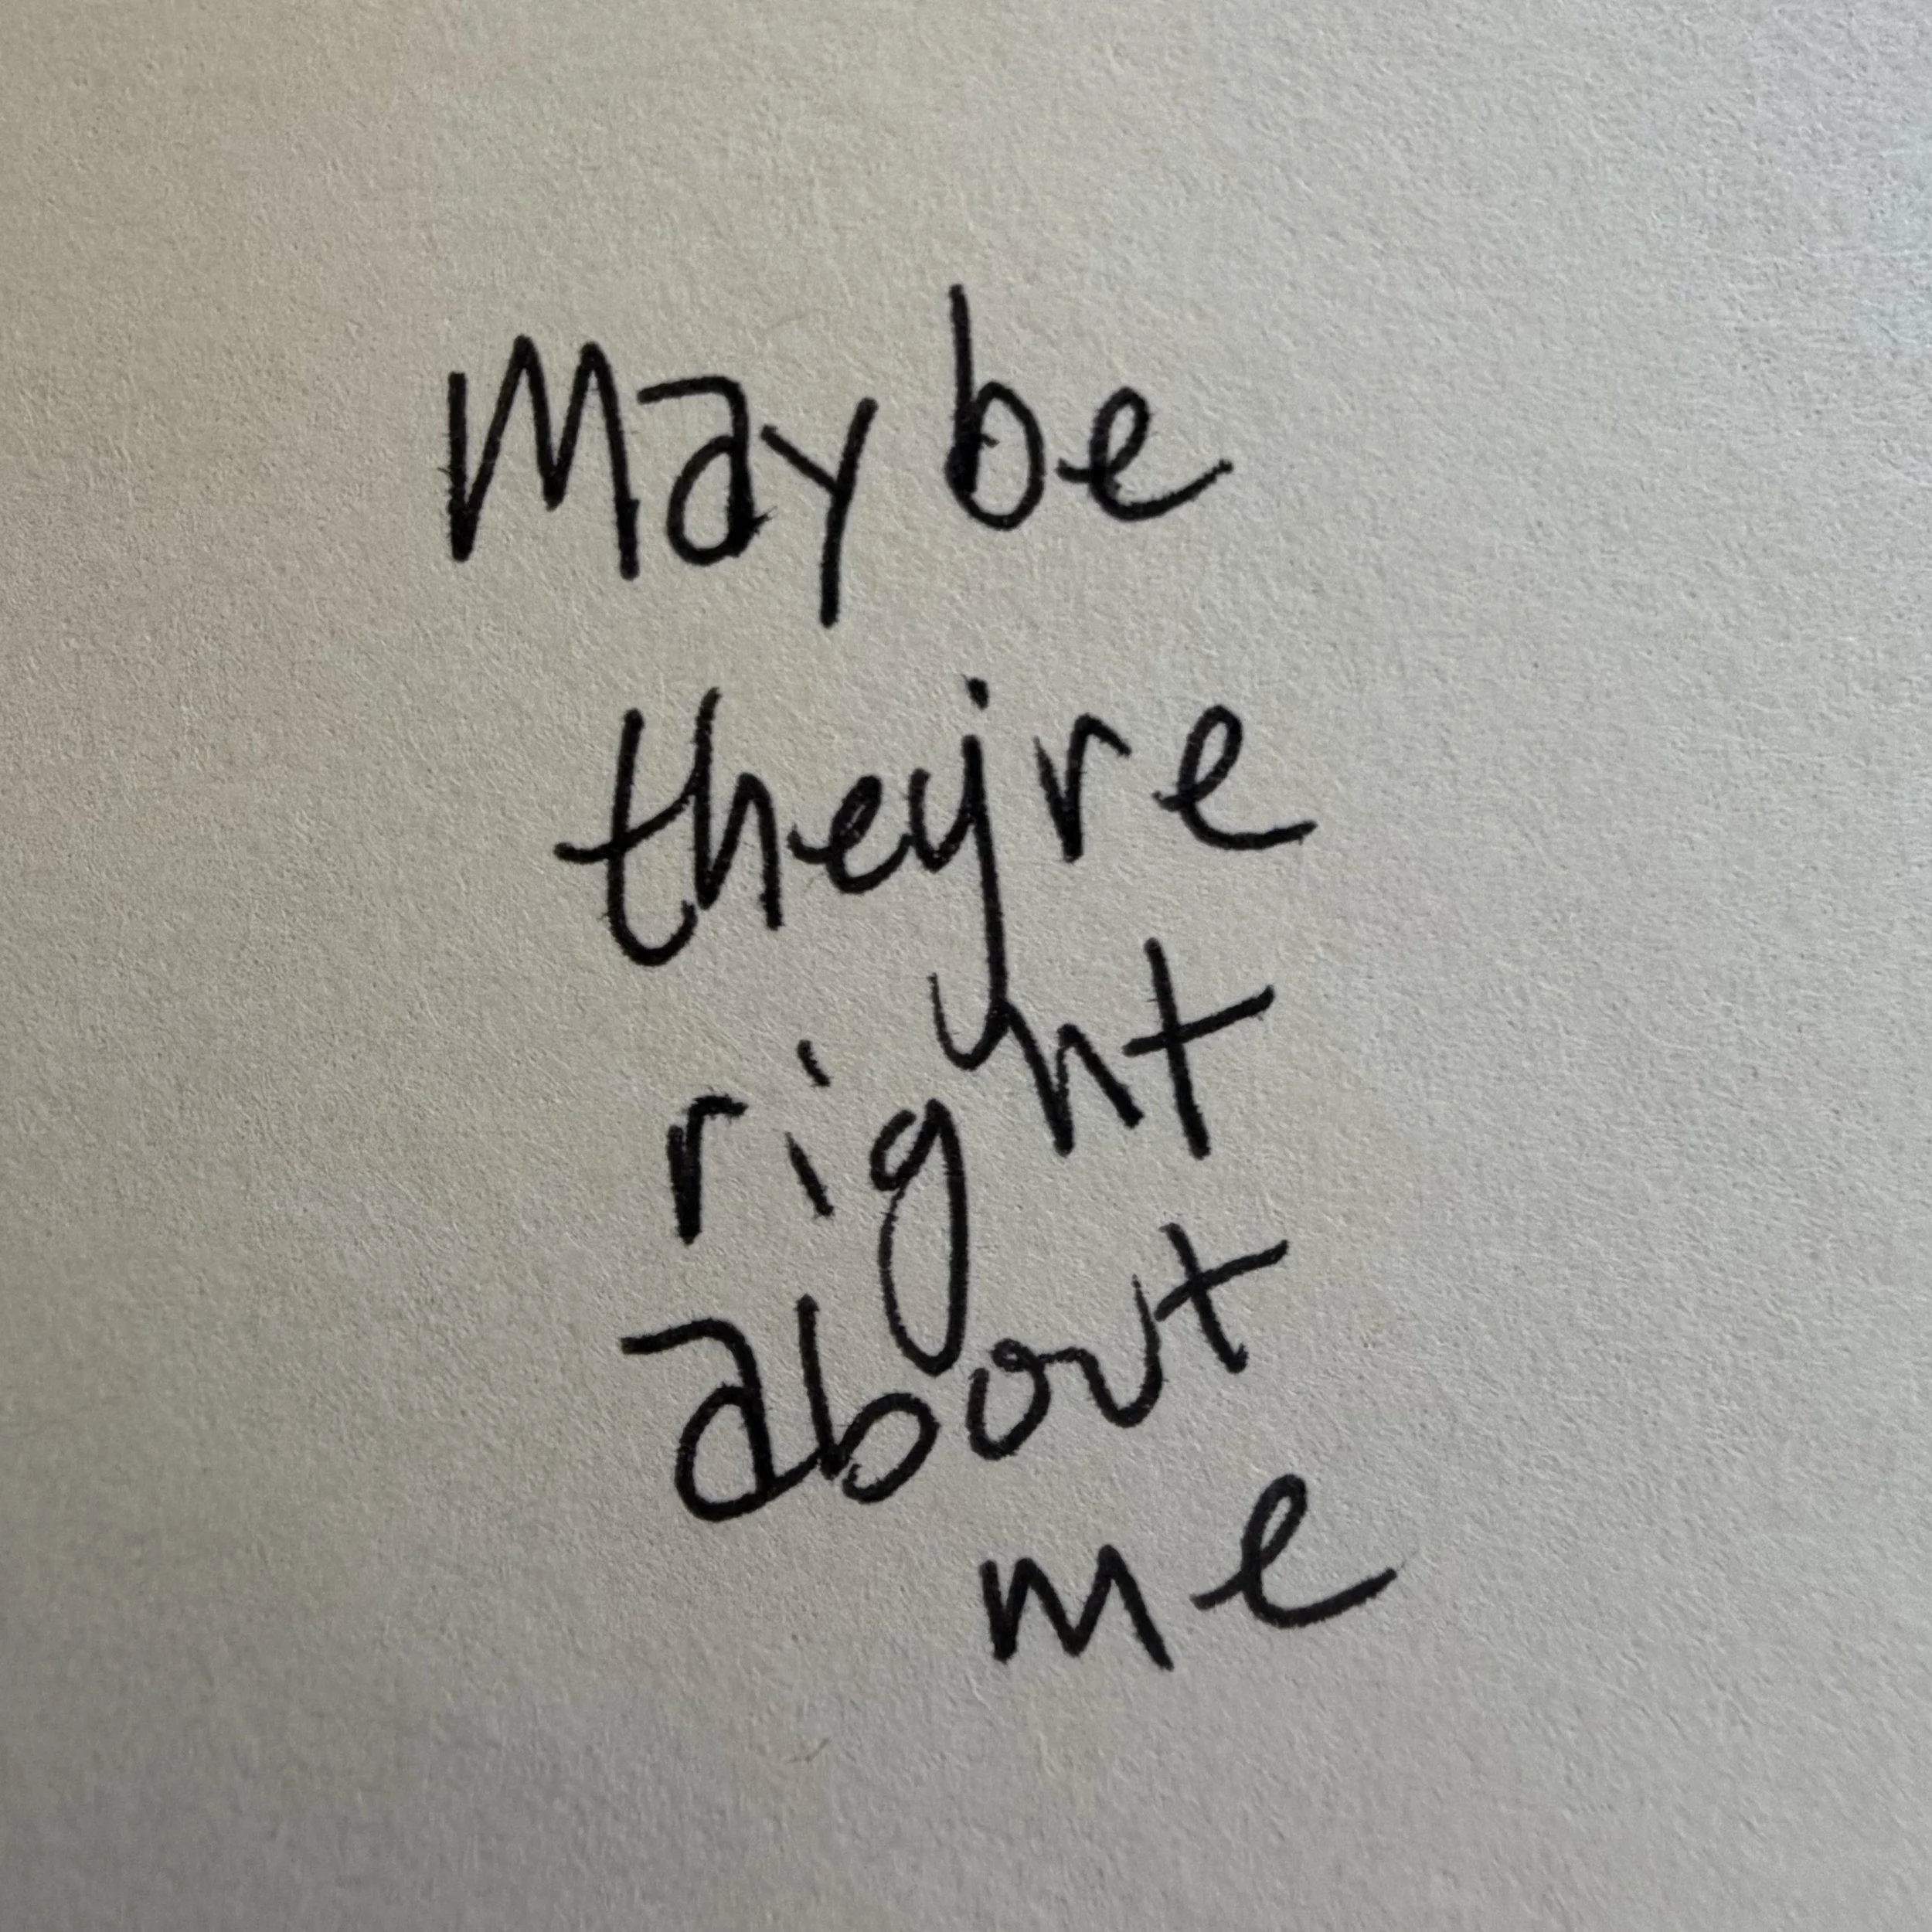 Maybe
they're
right
about
me